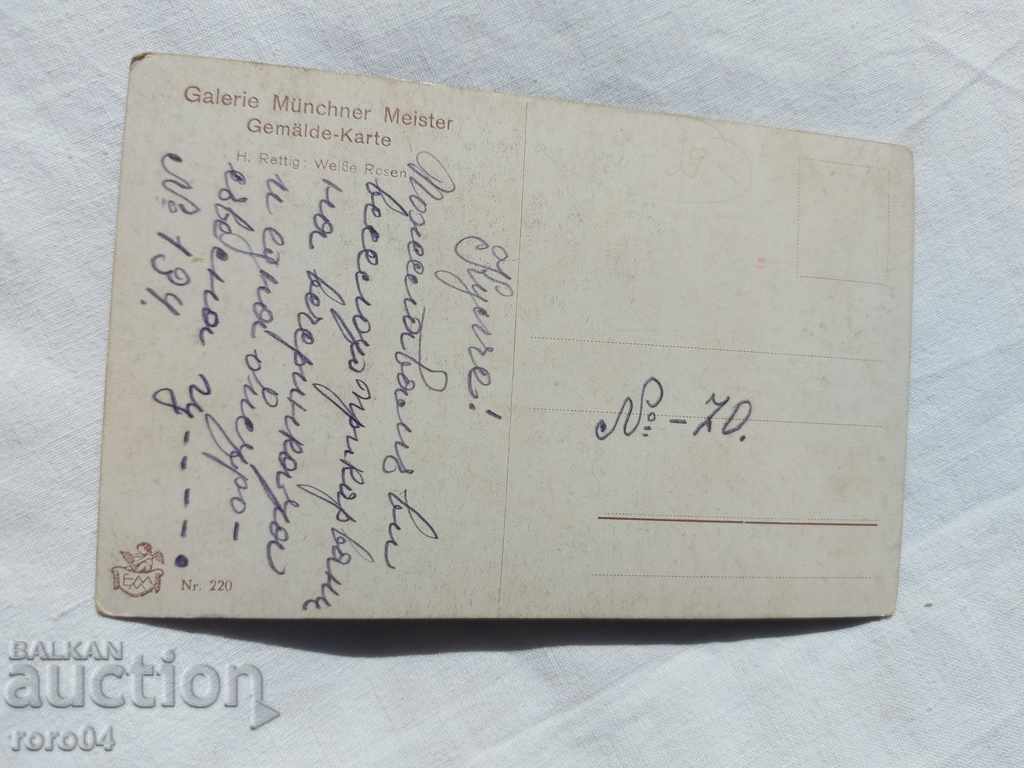 Galerie Münchner Meister
Gemälde-Karte
H. Rettig: Weiße Rosen
Куиче!
Пожелавамъ ви
весело прикарванѣ
на вечеринката
и една
на ц------.
№ 194.
№ -70.
GMM
Nr. 220
BALKAN
auction
roro04